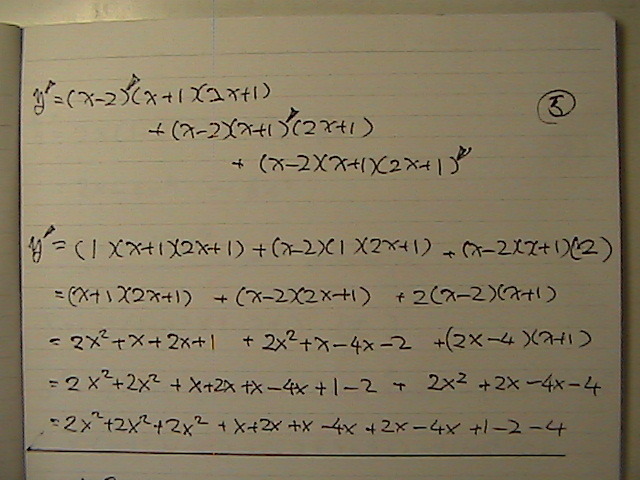 y' = (x-2)'(x+1)(2x+1)
+ (x-2)(x+1)'(2x+1)
+ (x-2)(x+1)(2x+1)'
5
y' = (1)(x+1)(2x+1) + (x-2)(1)(2x+1) + (x-2)(x+1)(2)
= (x+1)(2x+1) + (x-2)(2x+1) + 2(x-2)(x+1)
= 2x²+x+2x+1 + 2x²+x-4x-2 + (2x-4)(x+1)
= 2x²+2x² + x+2x+x-4x+1-2 + 2x²+2x-4x-4
= 2x²+2x²+2x² + x+2x+x-4x+2x-4x+1-2-4